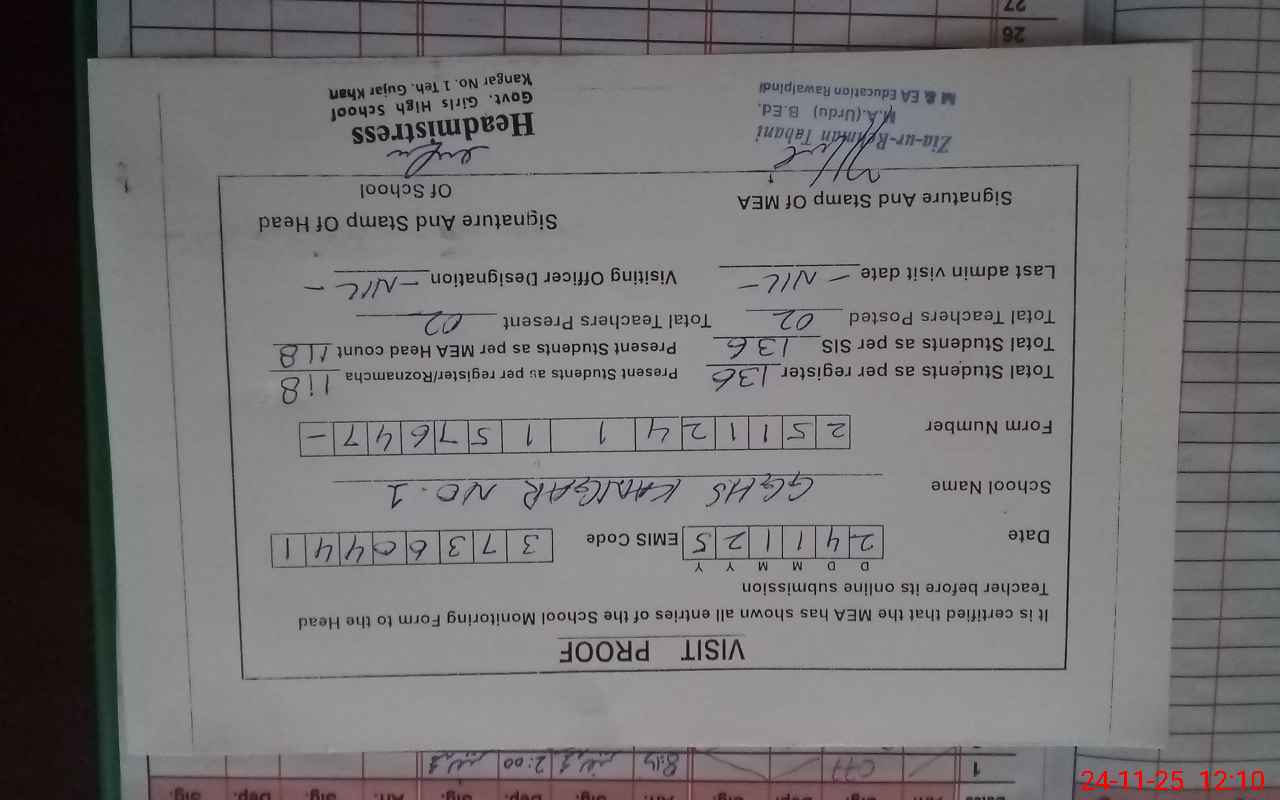 VISIT PROOF
It is certified that the MEA has shown all entries of the School Monitoring Form to the Head
Teacher before its online submission
D D M M Y Y
Date 2 4 1 1 2 5 EMIS Code 3 7 3 6 0 4 4 1
School Name GGHS KANGAR NO. 1
Form Number 2 5 1 1 2 4 1 1 5 7 6 4 7 -
Total Students as per register 136 Present Students as per register/Roznamcha 118
Total Students as per SIS 136 Present Students as per MEA Head count 118
Total Teachers Posted 02 Total Teachers Present 02
Last admin visit date - NIL - Visiting Officer Designation - NIL -
Signature And Stamp Of MEA Signature And Stamp Of Head
Of School
Zia-ur-Rehman Tabani
M.A.(Urdu) B.Ed.
M & EA Education Rawalpindi
Headmistress
Govt. Girls High School
Kangar No. 1 Teh. Gujar Khan
26
27
1
8:15
2:00
Dep. Sig. Arr. Dep. Sig.
24-11-25 12:10